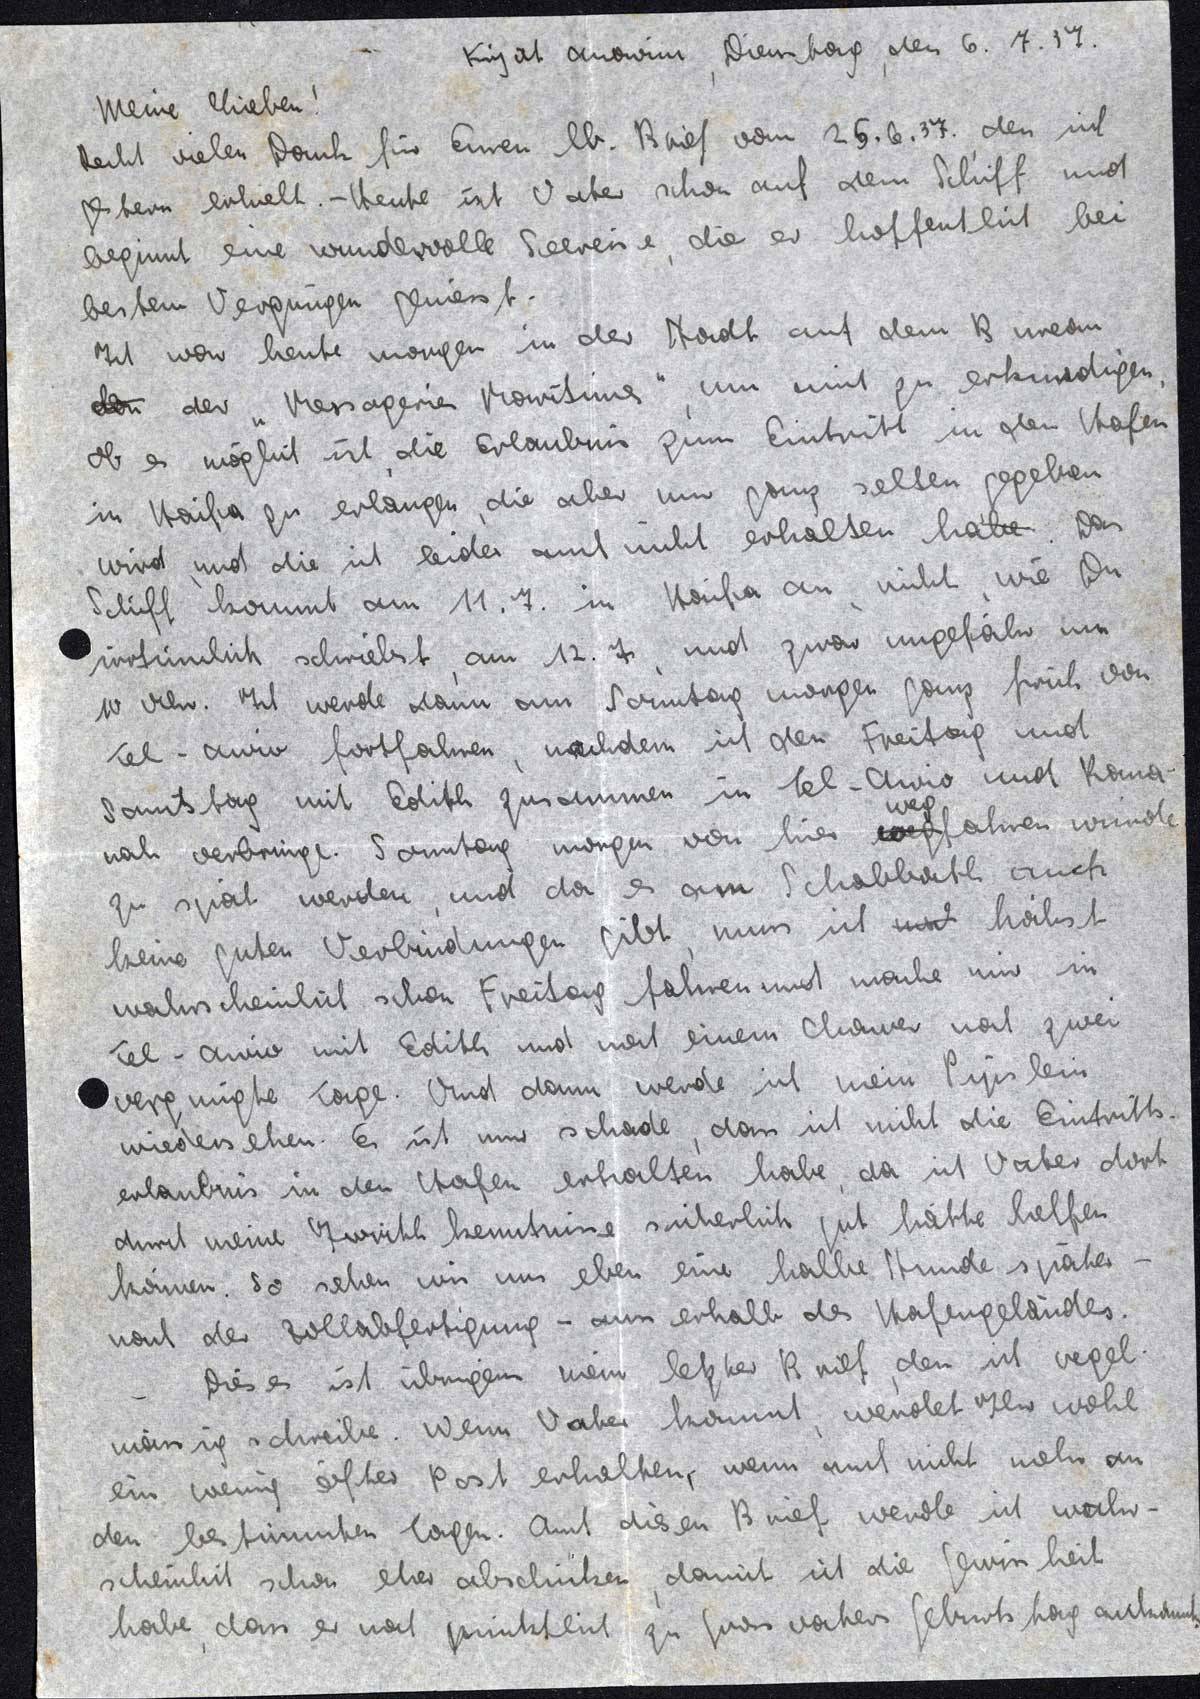 Kirjat Anawim, Dienstag, den 6. 7. 37.
Meine Lieben!
Recht vielen Dank für Euren lb. Brief vom 25.6.37, den ich
gestern erhielt. - Heute ist Vater schon auf dem Schiff und
beginnt eine wundervolle Seereise, die er hoffentlich bei
bestem Vergnügen geniesst.
Ich war heute morgen in der Stadt auf dem Bureau
den der „Messagerie Maritimes", um mich zu erkundigen,
ob es möglich ist, die Erlaubnis zum Eintritt in den Hafen
in Haifa zu erlangen, die aber nur ganz selten gegeben
wird und die ich leider auch nicht erhalten habe. Das
Schiff kommt am 11.7. in Haifa an, nicht, wie Du
irrtümlich schriebst, am 12.7., und zwar ungefähr um
10 Uhr. Ich werde dann am Sonntag morgen ganz früh von
Tel-Awiw fortfahren, nachdem ich den Freitag und
Samstag mit Edith zusammen in Tel-Awiw und Rana-
nah verbringe. Sonntag morgen von hier weg wegfahren würde
zu spät werden, und da es am Schabbath auch
keine guten Verbindungen gibt, muss ich höchst
wahrscheinlich schon Freitag fahren und mache mir in
Tel-Awiw mit Edith und noch einem Chawer noch zwei
vergnügte Tage. Und dann werde ich mein Päpslein
wiedersehen. Es ist nur schade, dass ich nicht die Eintritts-
erlaubnis in den Hafen erhalten habe, da ich Vater dort
durch meine Iwrithkenntnisse sicherlich gut hätte helfen
können. So sehen wir uns eben eine halbe Stunde später -
nach der Zollabfertigung - ausserhalb des Hafengeländes.
- Dieses ist übrigens mein letzter Brief, den ich regel-
mässig schreibe. Wenn Vater kommt, werdet Ihr wohl
ein wenig öfter Post erhalten, wenn auch nicht mehr an
den bestimmten Tagen. Auch diesen Brief werde ich wahr-
scheinlich schon eher abschicken, damit ich die Gewissheit
habe, dass er noch pünktlich zu Grossvaters Geburtstag ankommt.